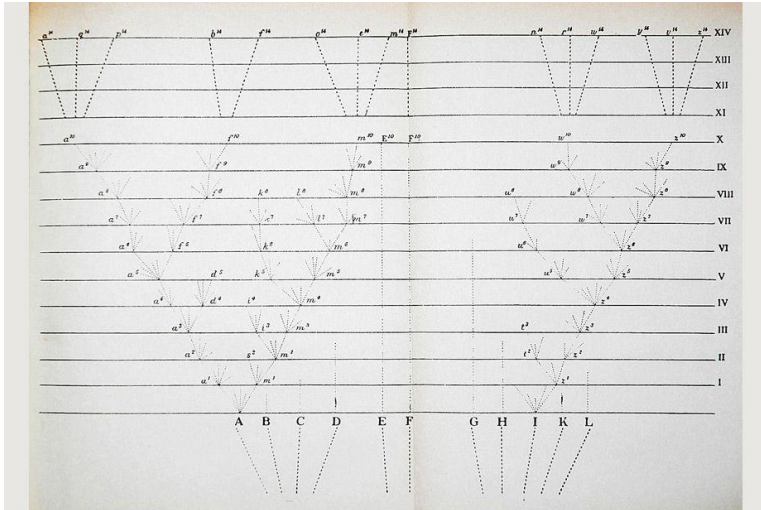 a¹⁴ q¹⁴ p¹⁴ b¹⁴ f¹⁴ o¹⁴ e¹⁴ m¹⁴ F¹⁴ n¹⁴ r¹⁴ w¹⁴ y¹⁴ v¹⁴ z¹⁴ XIV
XIII
XII
XI
a¹⁰ f¹⁰ m¹⁰ E¹⁰ F¹⁰ w¹⁰ z¹⁰ X
a⁹ f⁹ m⁹ w⁹ z⁹ IX
a⁸ f⁸ k⁸ l⁸ m⁸ u⁸ w⁸ z⁸ VIII
a⁷ f⁷ l⁷ m⁷ u⁷ w⁷ z⁷ VII
a⁶ f⁶ k⁶ m⁶ u⁶ z⁶ VI
a⁵ d⁵ k⁵ m⁵ u⁵ z⁵ V
d⁴ i⁴ m⁴ z⁴ IV
a³ i³ m³ t³ z³ III
a² s² t² z² II
a¹ m¹ z¹ I
A B C D E F G H I K L